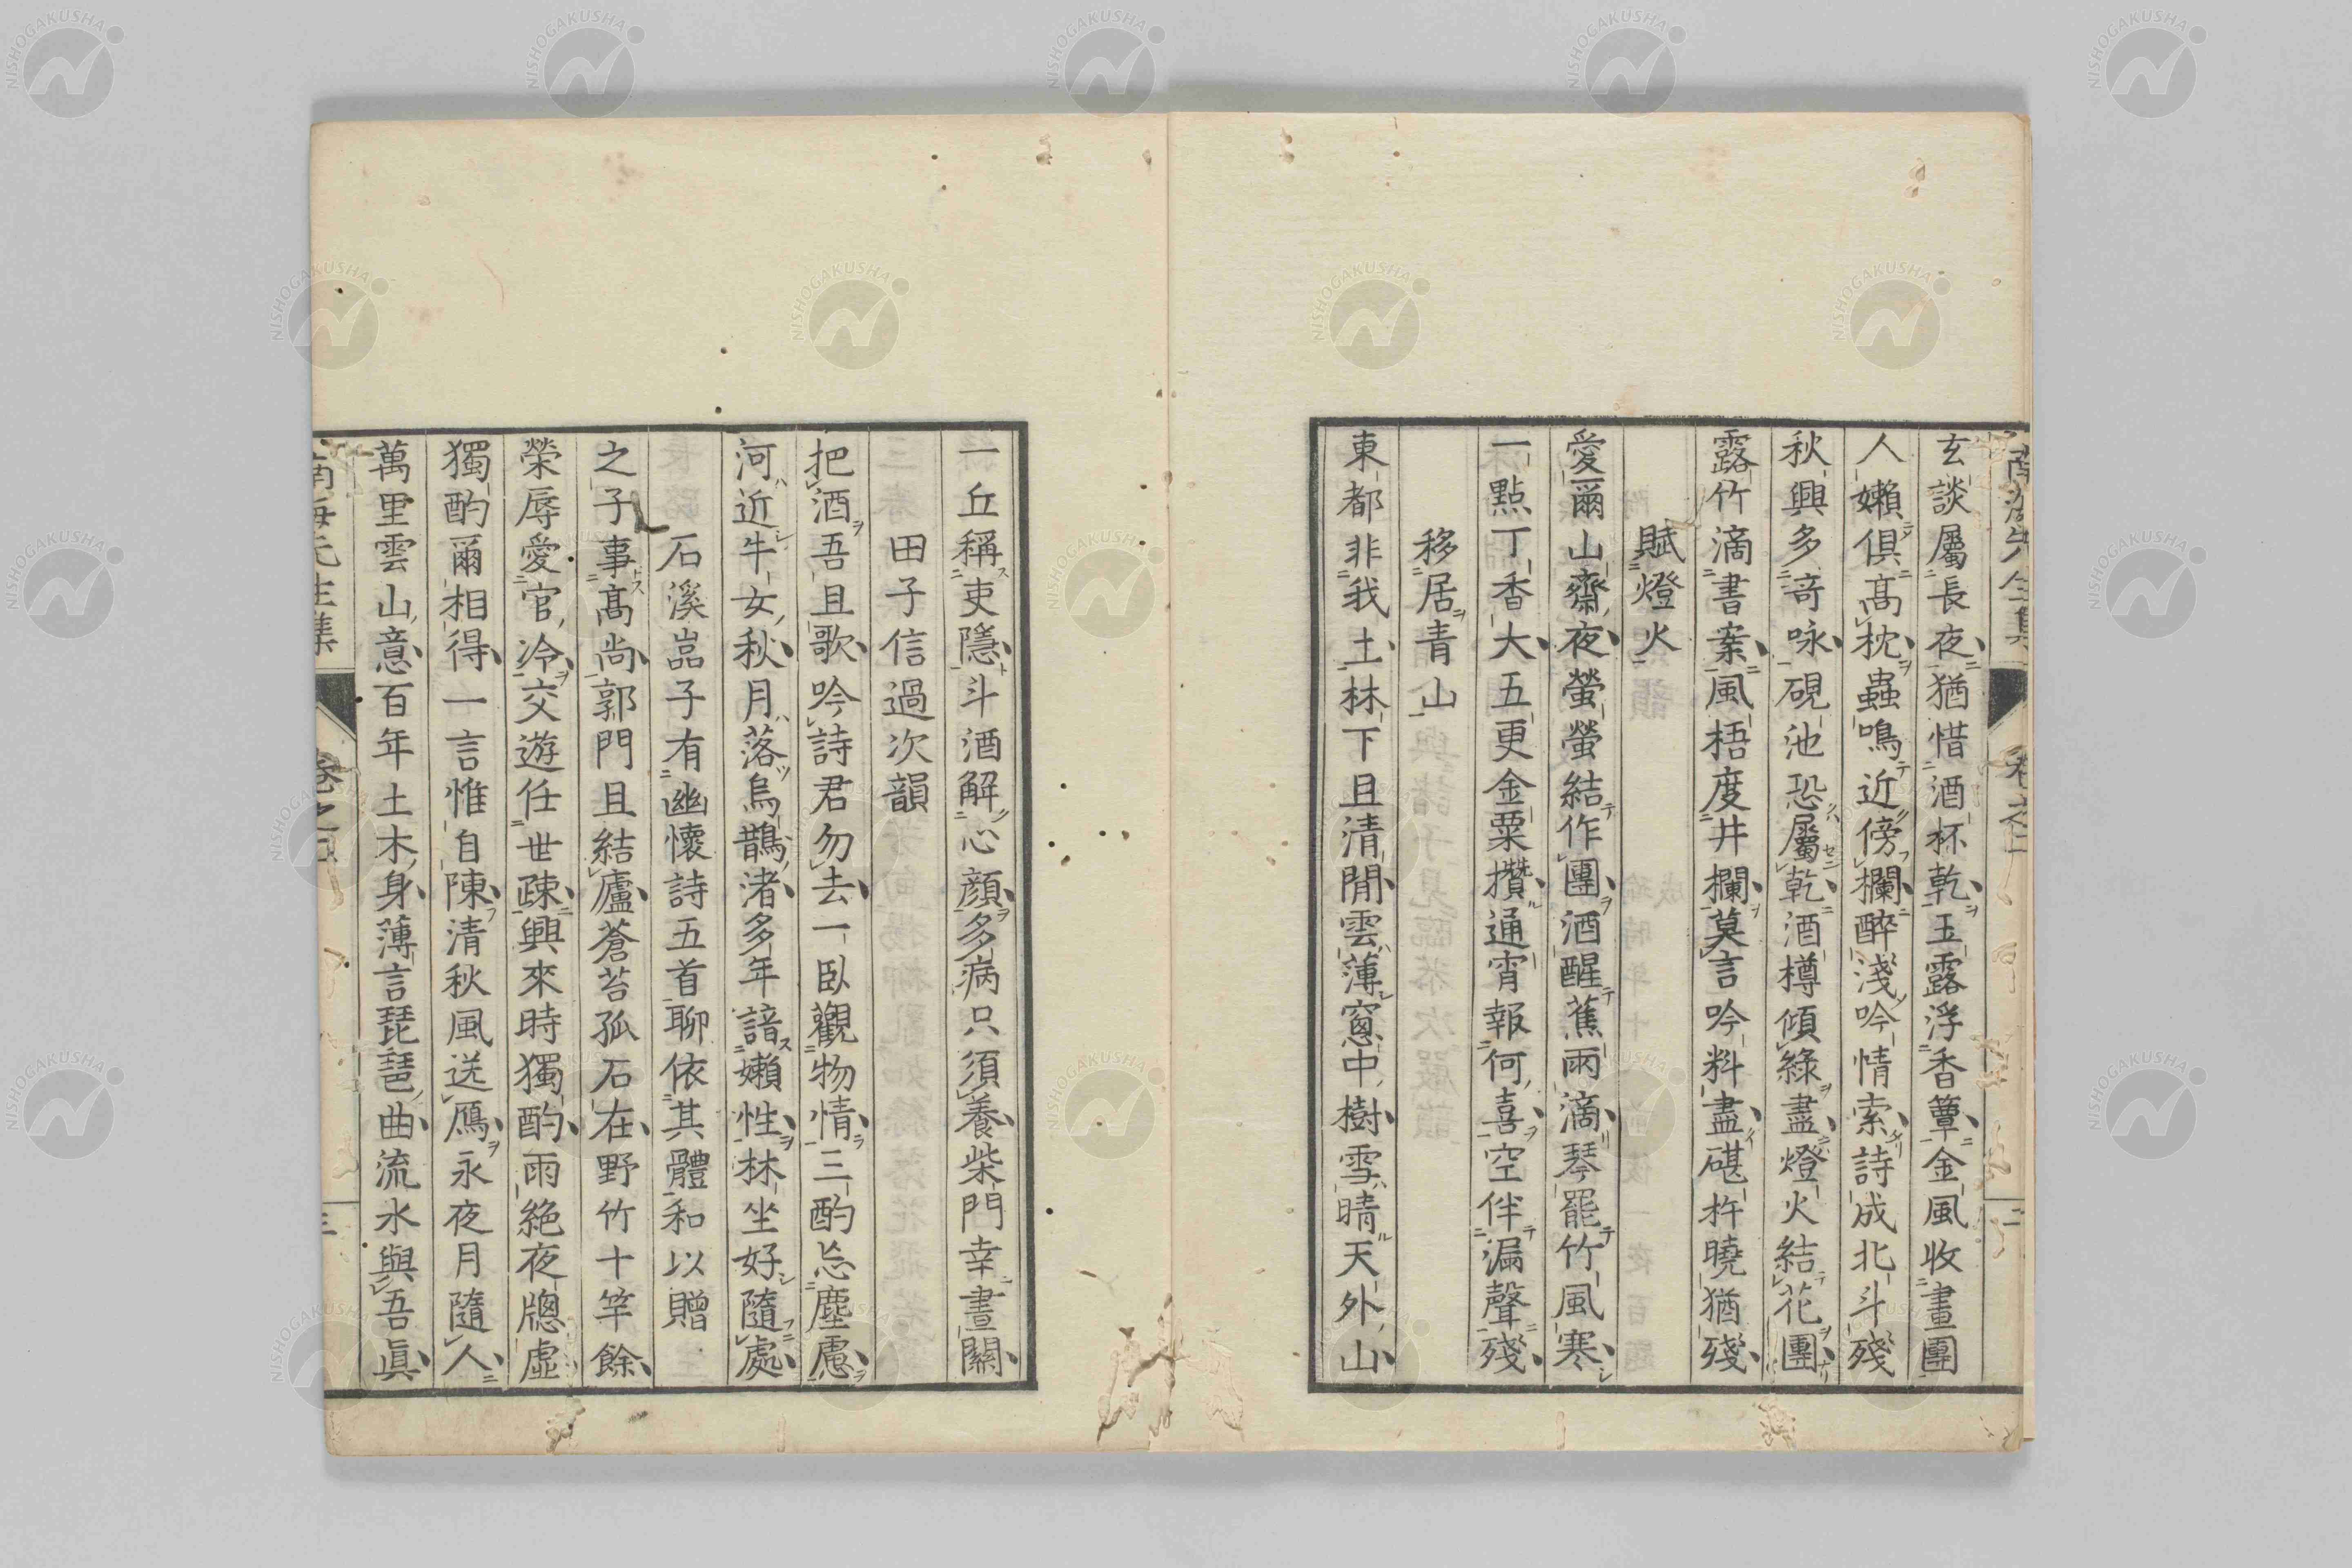 玄談屬長夜猶惜酒杯乾玉露浮香簟金風收畫團
人嬾俱高枕蟲鳴近傍欄醉淺吟情索詩成北斗殘
秋興多奇咏硯池恐屬乾酒樽傾綠盡燈火結花團
露竹滴書案風梧度井欄莫言吟料盡碪杵曉猶殘
賦燈火
愛爾山齋夜螢螢結作團酒醒蕉雨滴琴罷竹風寒
一點丁香大五更金粟攢通宵報何喜空伴漏聲殘
移居青山
東都非我土林下且清閒雲薄窻中樹雪晴天外山
一丘稱吏隱斗酒解心顏多病只須養柴門幸晝關
田子信過次韻
把酒吾且歌吟詩君勿去一臥觀物情三酌忘塵慮
河近牛女秋月落烏鵲渚多年諳嬾性林坐好隨處
石溪嵓子有幽懷詩五首聊依其體和以贈
之子事高尚郭門且結廬蒼苔孤石在野竹十竿餘
榮辱愛官冷交遊任世疎興來時獨酌雨絕夜牕虛
獨酌爾相得一言惟自陳清秋風送鴈永夜月隨人
萬里雲山意百年土木身薄言琵琶曲流水與吾眞